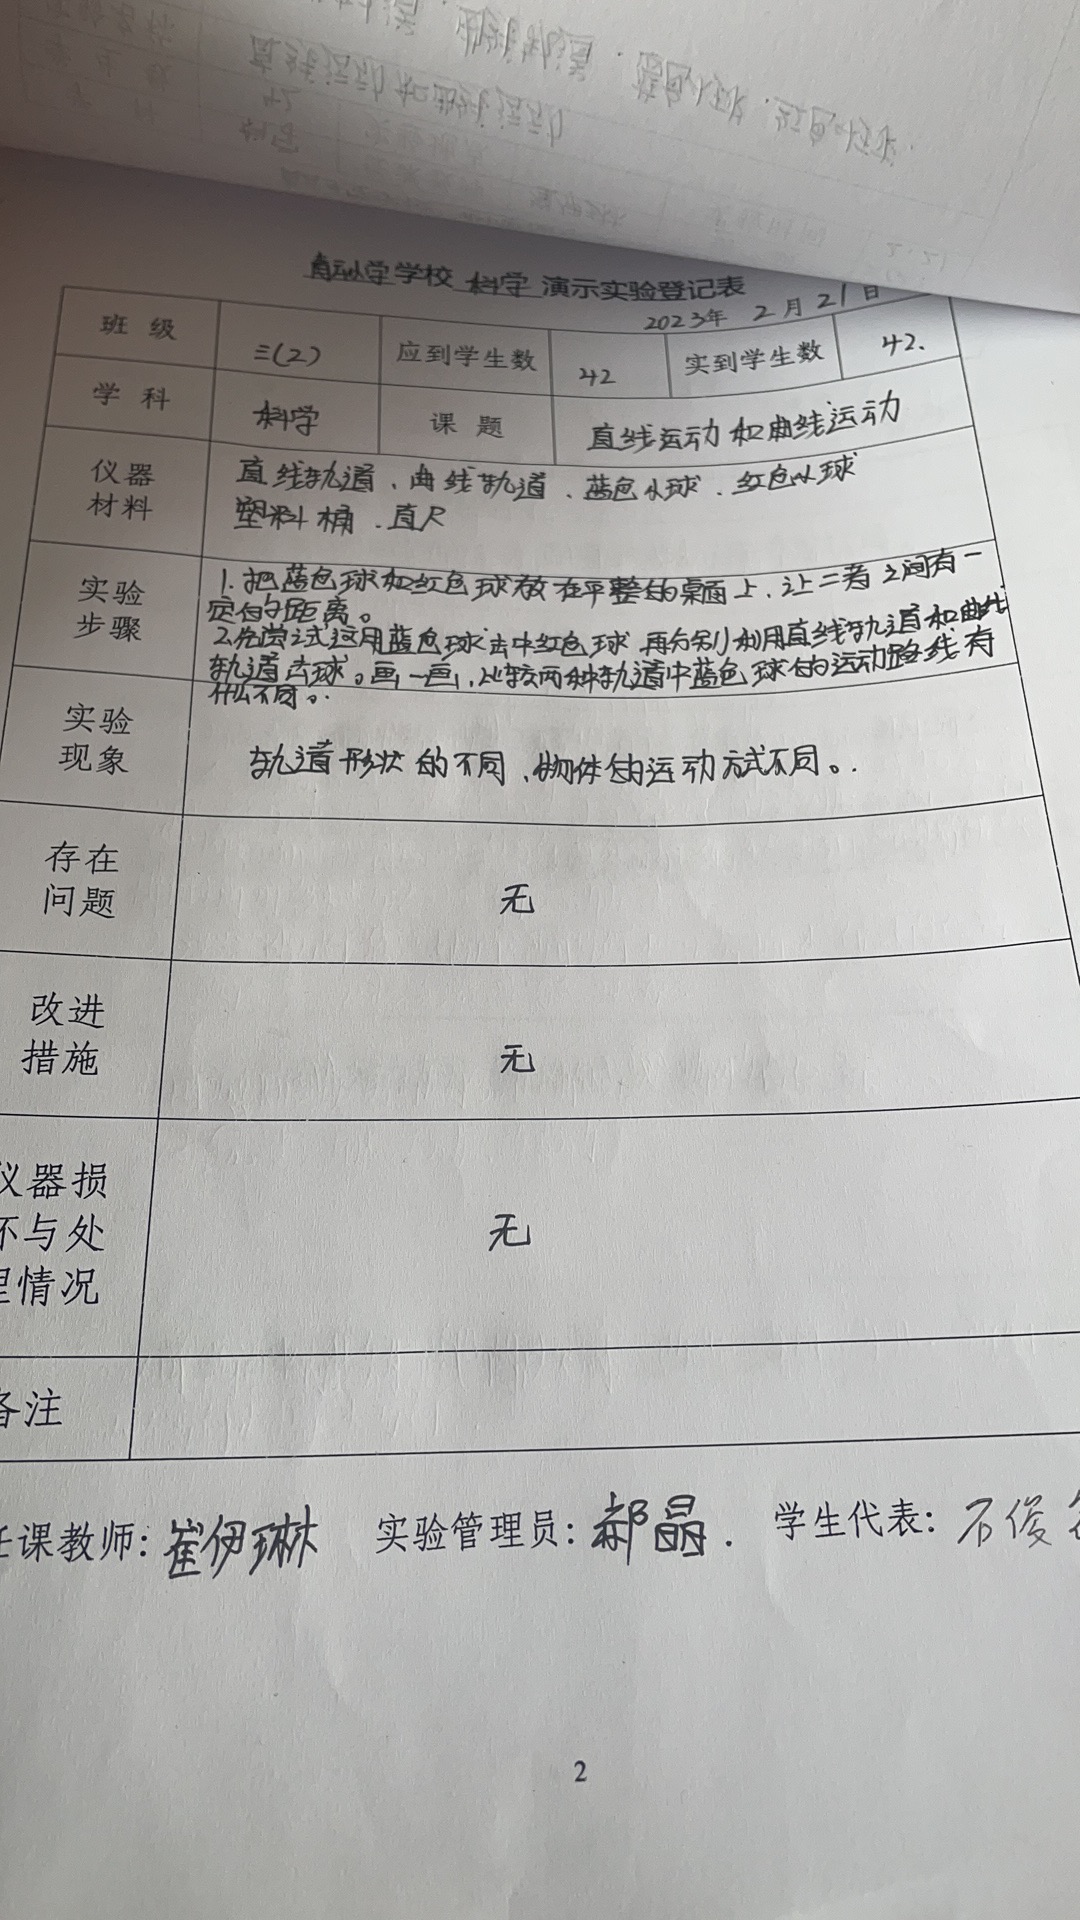 小学学校 科学 演示实验登记表
2023年 2月21日
班级 三(2) 应到学生数 42 实到学生数 42.
学科 科学 课题 直线运动和曲线运动
仪器材料 直线轨道、曲线轨道、蓝色小球、红色小球
塑料桶、直尺
实验步骤 1.把蓝色球和红色球放在平整的桌面上,让二者之间有一
定的距离。
2.先尝试这用蓝色球击中红色球,再分别利用直线轨道和曲线
轨道击球。画一画,比较两种轨道中蓝色球的运动路线有
什么不同。
实验现象 轨道形状的不同、物体的运动方式不同。.
存在问题 无
改进措施 无
仪器损坏与处理情况 无
备注
任课教师:崔伊琳 实验管理员:郝晶. 学生代表:石俊
2